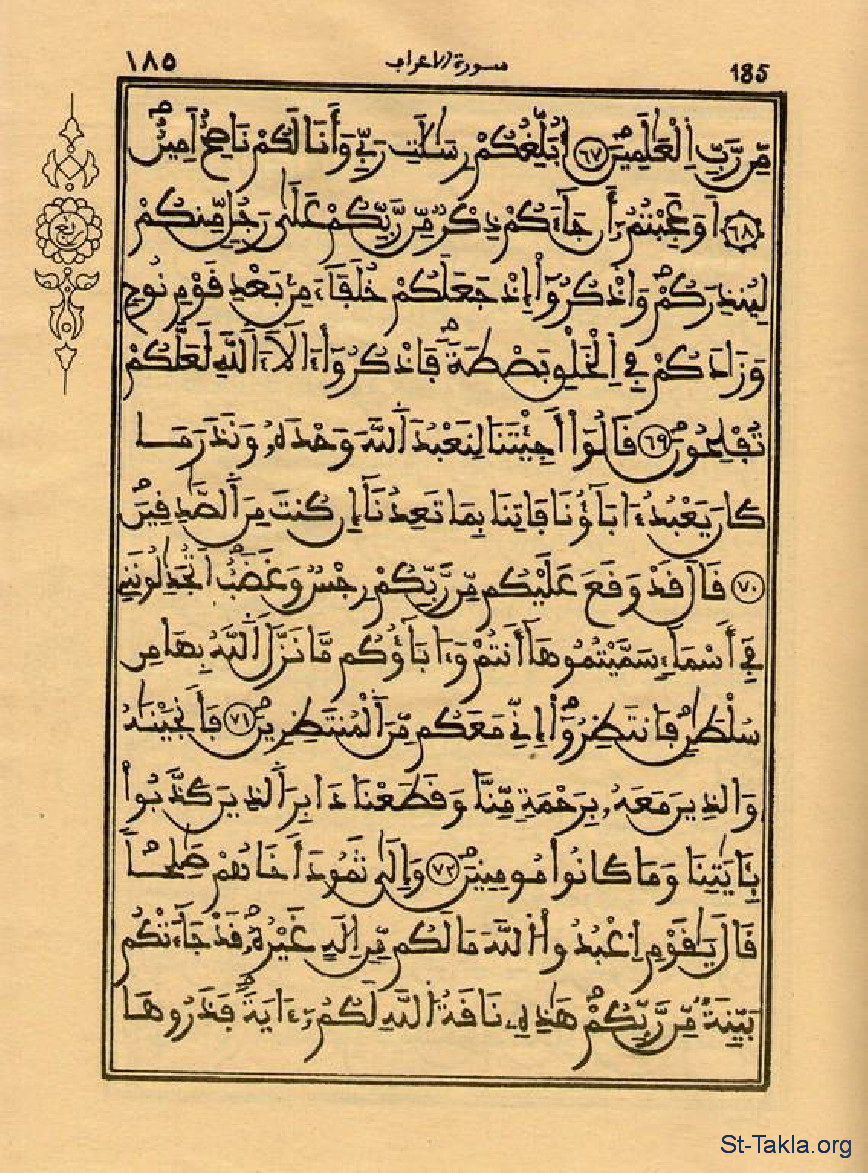 ١٨٥ سورة الاعراف 185
مِّن رَّبِّ اِ۬لْعَٰلَمِينَۖ ٦٧ أُبَلِّغُكُمْ رِسَٰلَٰتِ رَبِّے وَأَنَا لَكُمْ نَاصِحٌ اَمِينٌۖ
٦٨ اَوَعَجِبْتُمُۥٓ أَن جَآءَكُمْ ذِكْرٌ مِّن رَّبِّكُمْ عَلَىٰ رَجُلٍ مِّنكُمْ
لِيُنذِرَكُمْۖ وَاذْكُرُوٓاْ إِذْ جَعَلَكُمْ خُلَفَآءَ مِنۢ بَعْدِ قَوْمِ نُوحٍ
وَزَادَكُمْ فِے اِ۬لْخَلْقِ بَصْۜطَةٗۖ فَاذْكُرُوٓاْ ءَالَآءَ اَ۬للَّهِ لَعَلَّكُمْ
تُفْلِحُونَۖ ٦٩ قَالُوٓاْ أَجِئْتَنَا لِنَعْبُدَ اَ۬للَّهَ وَحْدَهُۥ وَنَذَرَ مَا
كَانَ يَعْبُدُ ءَابَآؤُنَا فَاتِنَا بِمَا تَعِدُنَآ إِن كُنتَ مِنَ اَ۬لصَّٰدِقِينَۖ
٧٠ قَالَ قَدْ وَقَعَ عَلَيْكُم مِّن رَّبِّكُمْ رِجْسٌ وَغَضَبٌۖ اَتُجَٰدِلُونَنِے
فِےٓ أَسْمَآءٍ سَمَّيْتُمُوهَآ أَنتُمْ وَءَابَآؤُكُم مَّا نَزَّلَ اَ۬للَّهُ بِهَا مِن
سُلْطَٰنٍۖ فَانتَظِرُوٓاْ إِنِّے مَعَكُم مِّنَ اَ۬لْمُنتَظِرِينَۖ ٧١ فَأَنجَيْنَٰهُ
وَالذِينَ مَعَهُۥ بِرَحْمَةٍ مِّنَّا وَقَطَعْنَا دَابِرَ اَ۬لذِينَ كَذَّبُواْ
بِـَٔايَٰتِنَا وَمَا كَانُواْ مُومِنِينَۖ ٧٢ وَإِلَىٰ ثَمُودَ أَخَاهُمْ صَٰلِحاٗ
قَالَ يَٰقَوْمِ اِ۟عْبُدُواْ اُ۬للَّهَ مَا لَكُم مِّنِ اِلَٰهٍ غَيْرُهُۥۖ قَدْ جَآءَتْكُم
بَيِّنَةٌ مِّن رَّبِّكُمْۖ هَٰذِهِۦ نَاقَةُ اُ۬للَّهِ لَكُمُۥٓ ءَايَةٗۖ فَذَرُوهَا
St-Takla.org